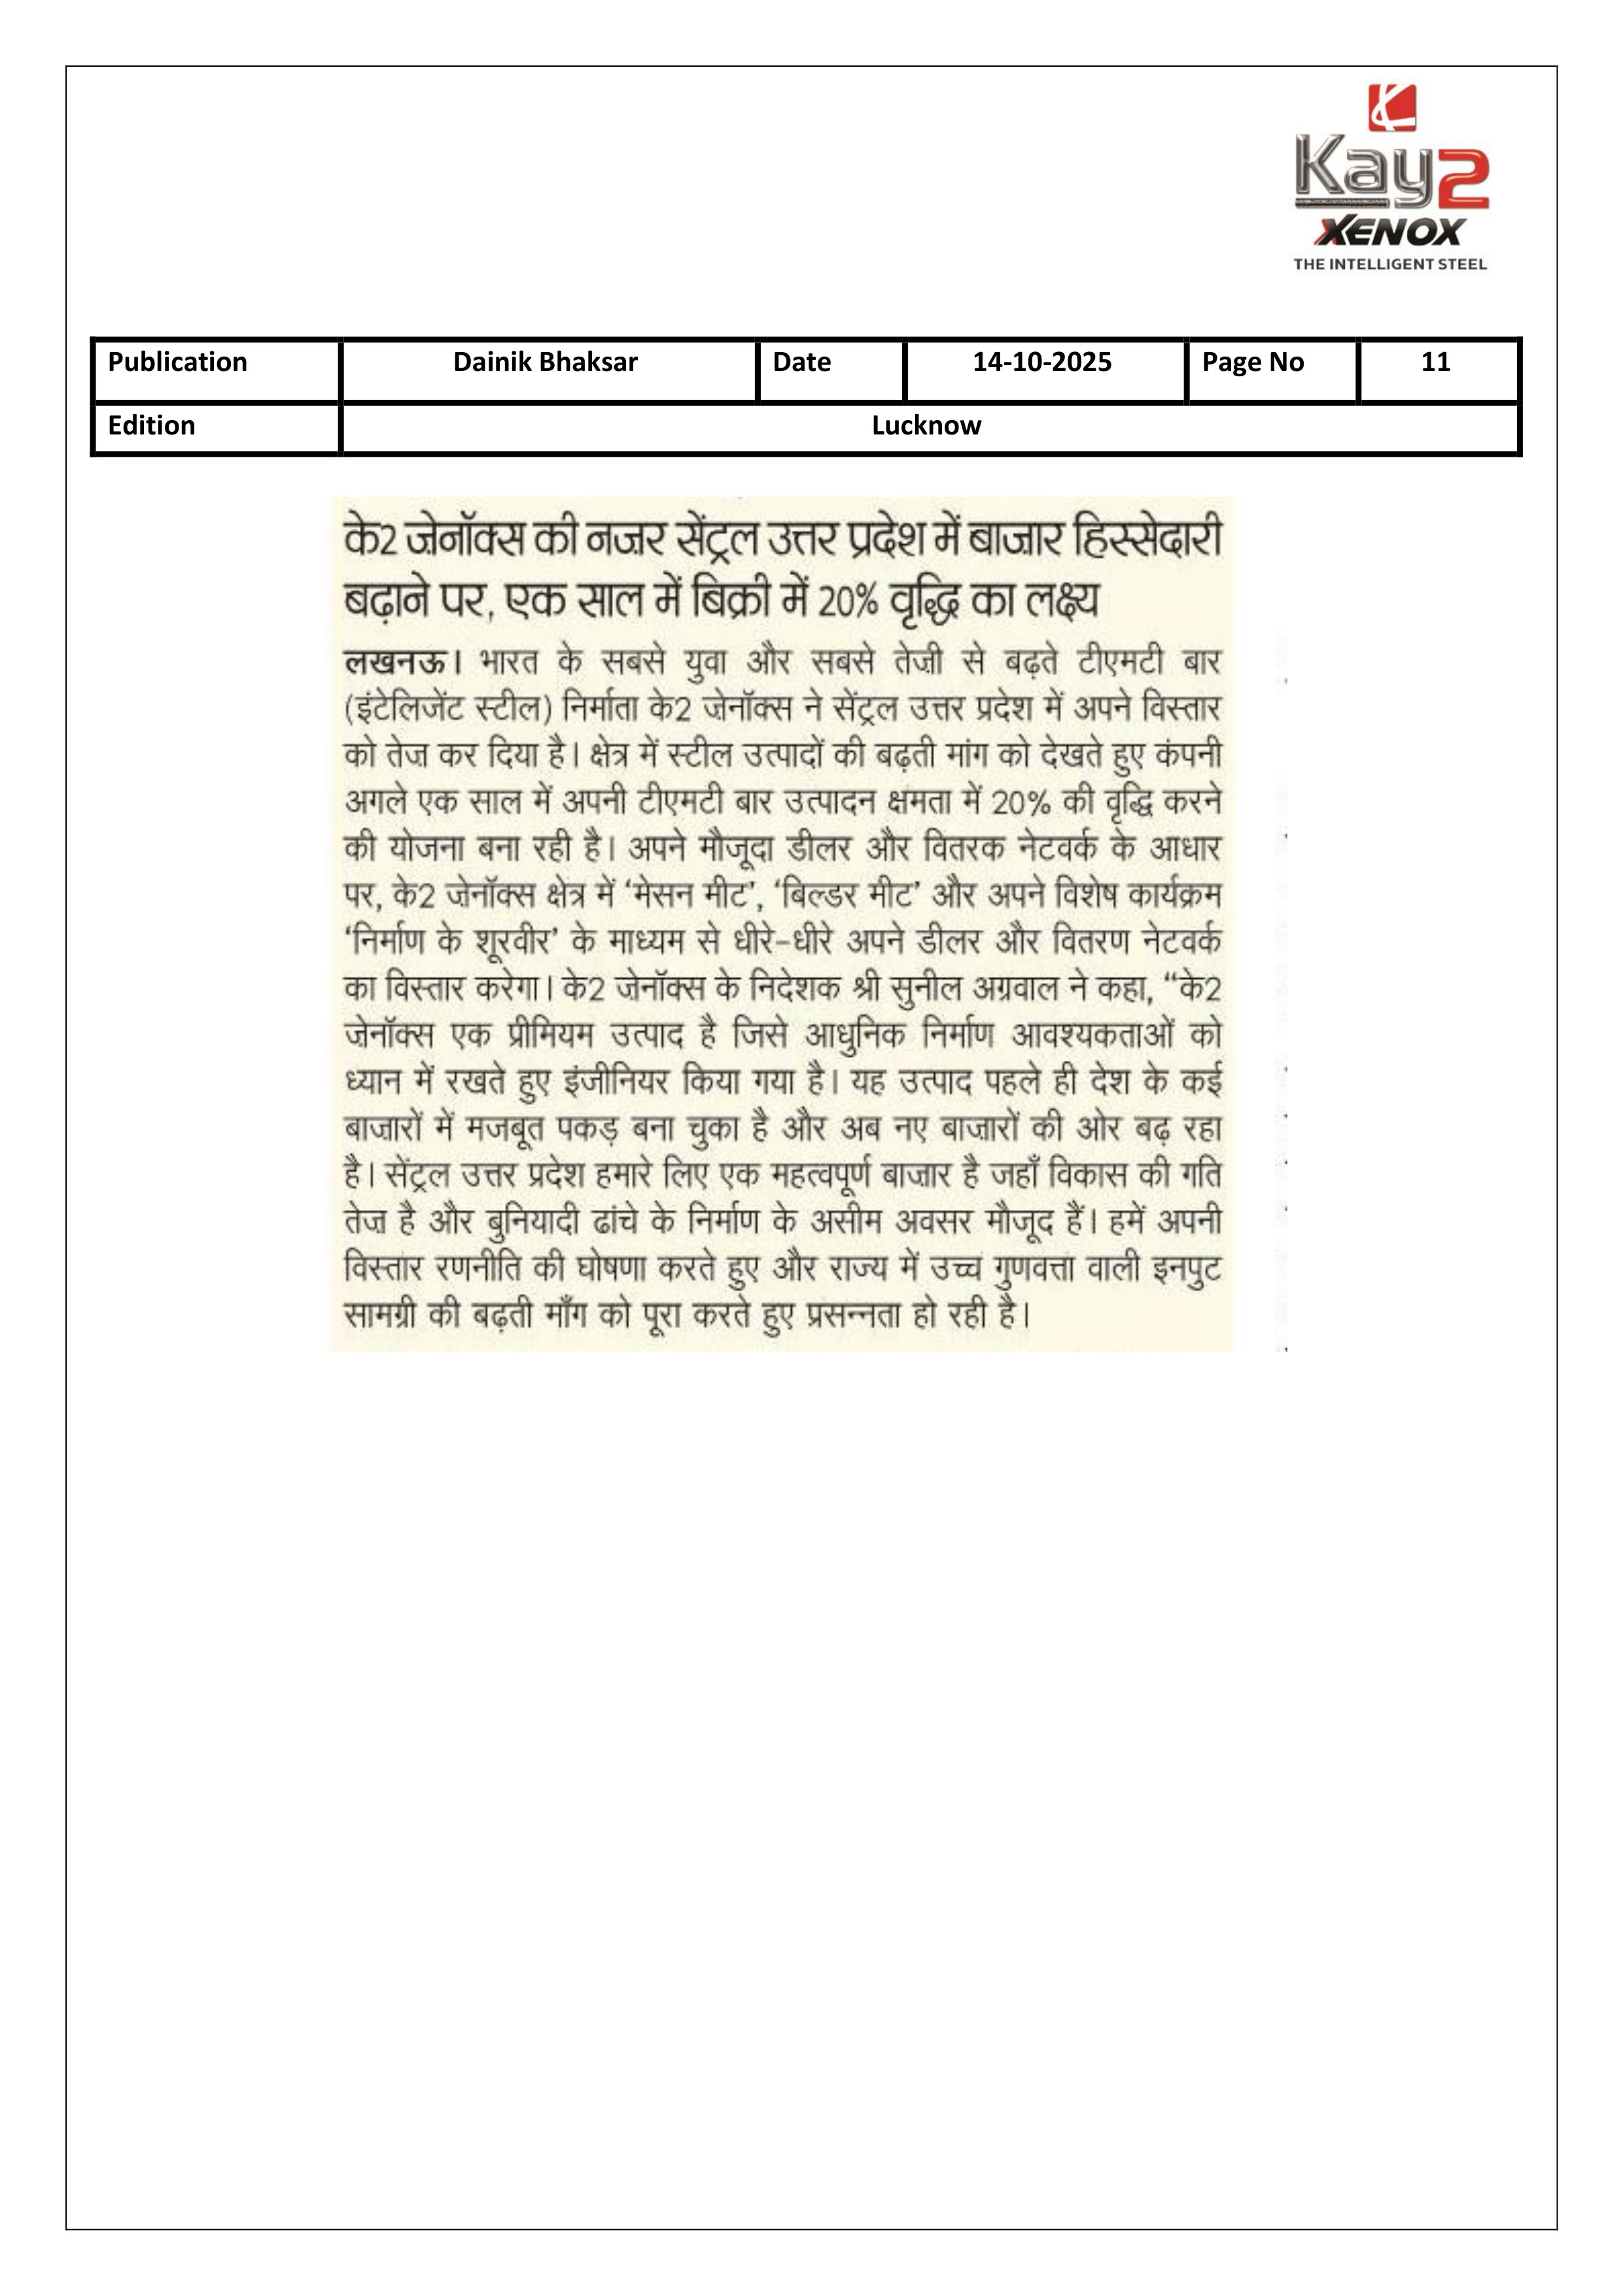 Kay2
XENOX
THE INTELLIGENT STEEL
Publication Dainik Bhaksar Date 14-10-2025 Page No 11
Edition Lucknow
के2 जेनॉक्स की नजर सेंट्रल उत्तर प्रदेश में बाजार हिस्सेदारी
बढ़ाने पर, एक साल में बिक्री में 20% वृद्धि का लक्ष्य
लखनऊ। भारत के सबसे युवा और सबसे तेज़ी से बढ़ते टीएमटी बार
(इंटेलिजेंट स्टील) निर्माता के2 जेनॉक्स ने सेंट्रल उत्तर प्रदेश में अपने विस्तार
को तेज कर दिया है। क्षेत्र में स्टील उत्पादों की बढ़ती मांग को देखते हुए कंपनी
अगले एक साल में अपनी टीएमटी बार उत्पादन क्षमता में 20% की वृद्धि करने
की योजना बना रही है। अपने मौजूदा डीलर और वितरक नेटवर्क के आधार
पर, के2 जेनॉक्स क्षेत्र में ‘मेसन मीट’, ‘बिल्डर मीट’ और अपने विशेष कार्यक्रम
‘निर्माण के शूरवीर’ के माध्यम से धीरे-धीरे अपने डीलर और वितरण नेटवर्क
का विस्तार करेगा। के2 जेनॉक्स के निदेशक श्री सुनील अग्रवाल ने कहा, “के2
जेनॉक्स एक प्रीमियम उत्पाद है जिसे आधुनिक निर्माण आवश्यकताओं को
ध्यान में रखते हुए इंजीनियर किया गया है। यह उत्पाद पहले ही देश के कई
बाजारों में मजबूत पकड़ बना चुका है और अब नए बाजारों की ओर बढ़ रहा
है। सेंट्रल उत्तर प्रदेश हमारे लिए एक महत्वपूर्ण बाजार है जहाँ विकास की गति
तेज है और बुनियादी ढांचे के निर्माण के असीम अवसर मौजूद हैं। हमें अपनी
विस्तार रणनीति की घोषणा करते हुए और राज्य में उच्च गुणवत्ता वाली इनपुट
सामग्री की बढ़ती माँग को पूरा करते हुए प्रसन्नता हो रही है।